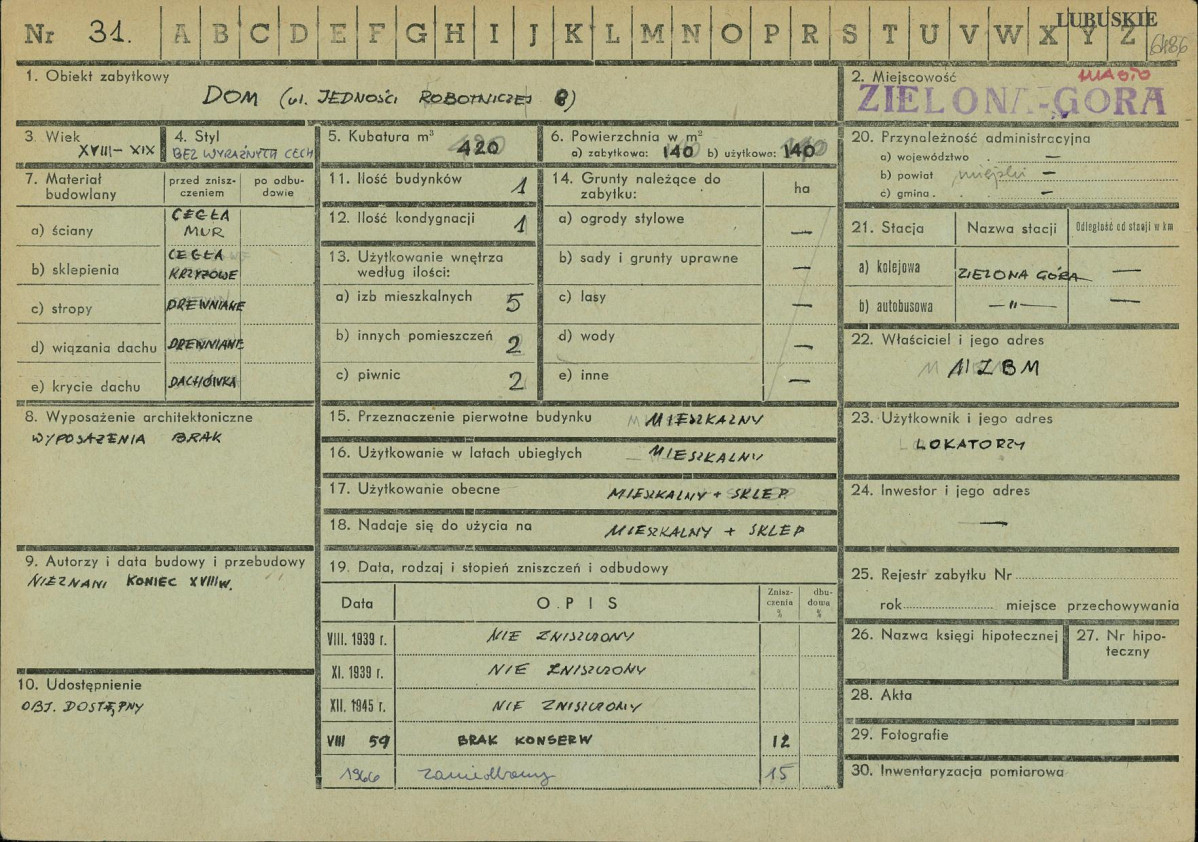 Nr 31. A B C D E F G H I J K L M N O P R S T U V W X Y Z LUBUSKIE
1. Obiekt zabytkowy
DOM (ul. JEDNOŚCI ROBOTNICZEJ 8)
2. Miejscowość MIASTO
ZIELONA-GÓRA
3. Wiek
XVIII – XIX
4. Styl
BEZ WYRAŹNYCH CECH
5. Kubatura m³
420
6. Powierzchnia w m²
a) zabytkowa: 140 b) użytkowa: 140
7. Materiał budowlany
przed zniszczeniem
po odbudowie
a) ściany CEGŁA MUR
b) sklepienia CEGŁA KRZYŻOWE
c) stropy DREWNIANE
d) wiązania dachu DREWNIANE
e) krycie dachu DACHÓWKA
8. Wyposażenie architektoniczne
WYPOSAŻENIA BRAK
9. Autorzy i data budowy i przebudowy
NIEZNANI KONIEC XVIII W.
10. Udostępnienie
OBJ. DOSTĘPNY
11. Ilość budynków 1
12. Ilość kondygnacji 1
13. Użytkowanie wnętrza
według ilości:
a) izb mieszkalnych 5
b) innych pomieszczeń 2
c) piwnic 2
14. Grunty należące do
zabytku: ha
a) ogrody stylowe —
b) sady i grunty uprawne —
c) lasy —
d) wody —
e) inne —
15. Przeznaczenie pierwotne budynku MIESZKALNY
16. Użytkowanie w latach ubiegłych MIESZKALNY
17. Użytkowanie obecne MIESZKALNY + SKLEP
18. Nadaje się do użycia na MIESZKALNY + SKLEP
19. Data, rodzaj i stopień zniszczeń i odbudowy
Data OPIS Zniszczenia % dbudowa %
VIII. 1939 r. NIE ZNISZCZONY
XI. 1939 r. NIE ZNISZCZONY
XII. 1945 r. NIE ZNISZCZONY
VIII 59 BRAK KONSERW 12
1966 zaniedbany 15
20. Przynależność administracyjna
a) województwo —
b) powiat miejski —
c) gmina —
21. Stacja Nazwa stacji Odległość od stacji w km
a) kolejowa ZIELONA GÓRA —
b) autobusowa —"— —
22. Właściciel i jego adres
MZBM
23. Użytkownik i jego adres
LOKATORZY
24. Inwestor i jego adres
—
25. Rejestr zabytku Nr
rok miejsce przechowywania
26. Nazwa księgi hipotecznej
27. Nr hipoteczny
28. Akta
29. Fotografie
30. Inwentaryzacja pomiarowa